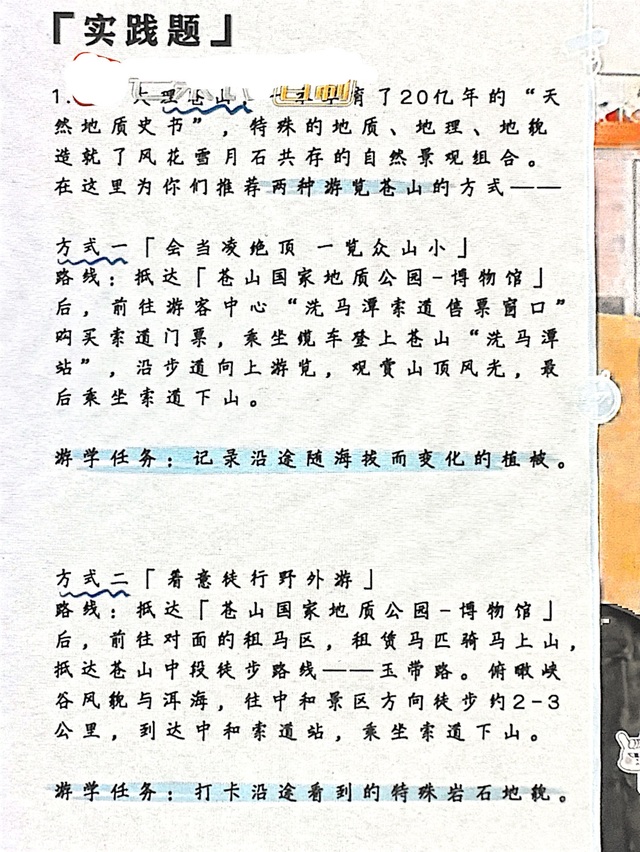 「实践题」
1. 大理苍山, 育了20亿年的“天
然地质史书”,特殊的地质、地理、地貌
造就了风花雪月石共存的自然景观组合。
在这里为你们推荐两种游览苍山的方式——
方式一「会当凌绝顶 一览众山小」
路线:抵达「苍山国家地质公园-博物馆」
后,前往游客中心“洗马潭索道售票窗口”
购买索道门票,乘坐缆车登上苍山“洗马潭
站”,沿步道向上游览,观赏山顶风光,最
后乘坐索道下山。
游学任务:记录沿途随海拔而变化的植被。
方式二「着意徒行野外游」
路线:抵达「苍山国家地质公园-博物馆」
后,前往对面的租马区,租赁马匹骑马上山,
抵达苍山中段徒步路线——玉带路。俯瞰峡
谷风貌与洱海,往中和景区方向徒步约2-3
公里,到达中和索道站,乘坐索道下山。
游学任务:打卡沿途看到的特殊岩石地貌。